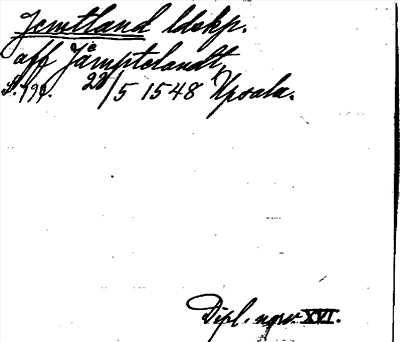 Jemtland ldskp.
aff Jämptelandt,
S. 791. 28/5 1548 Upsala.
Dipl. norv. XVI.